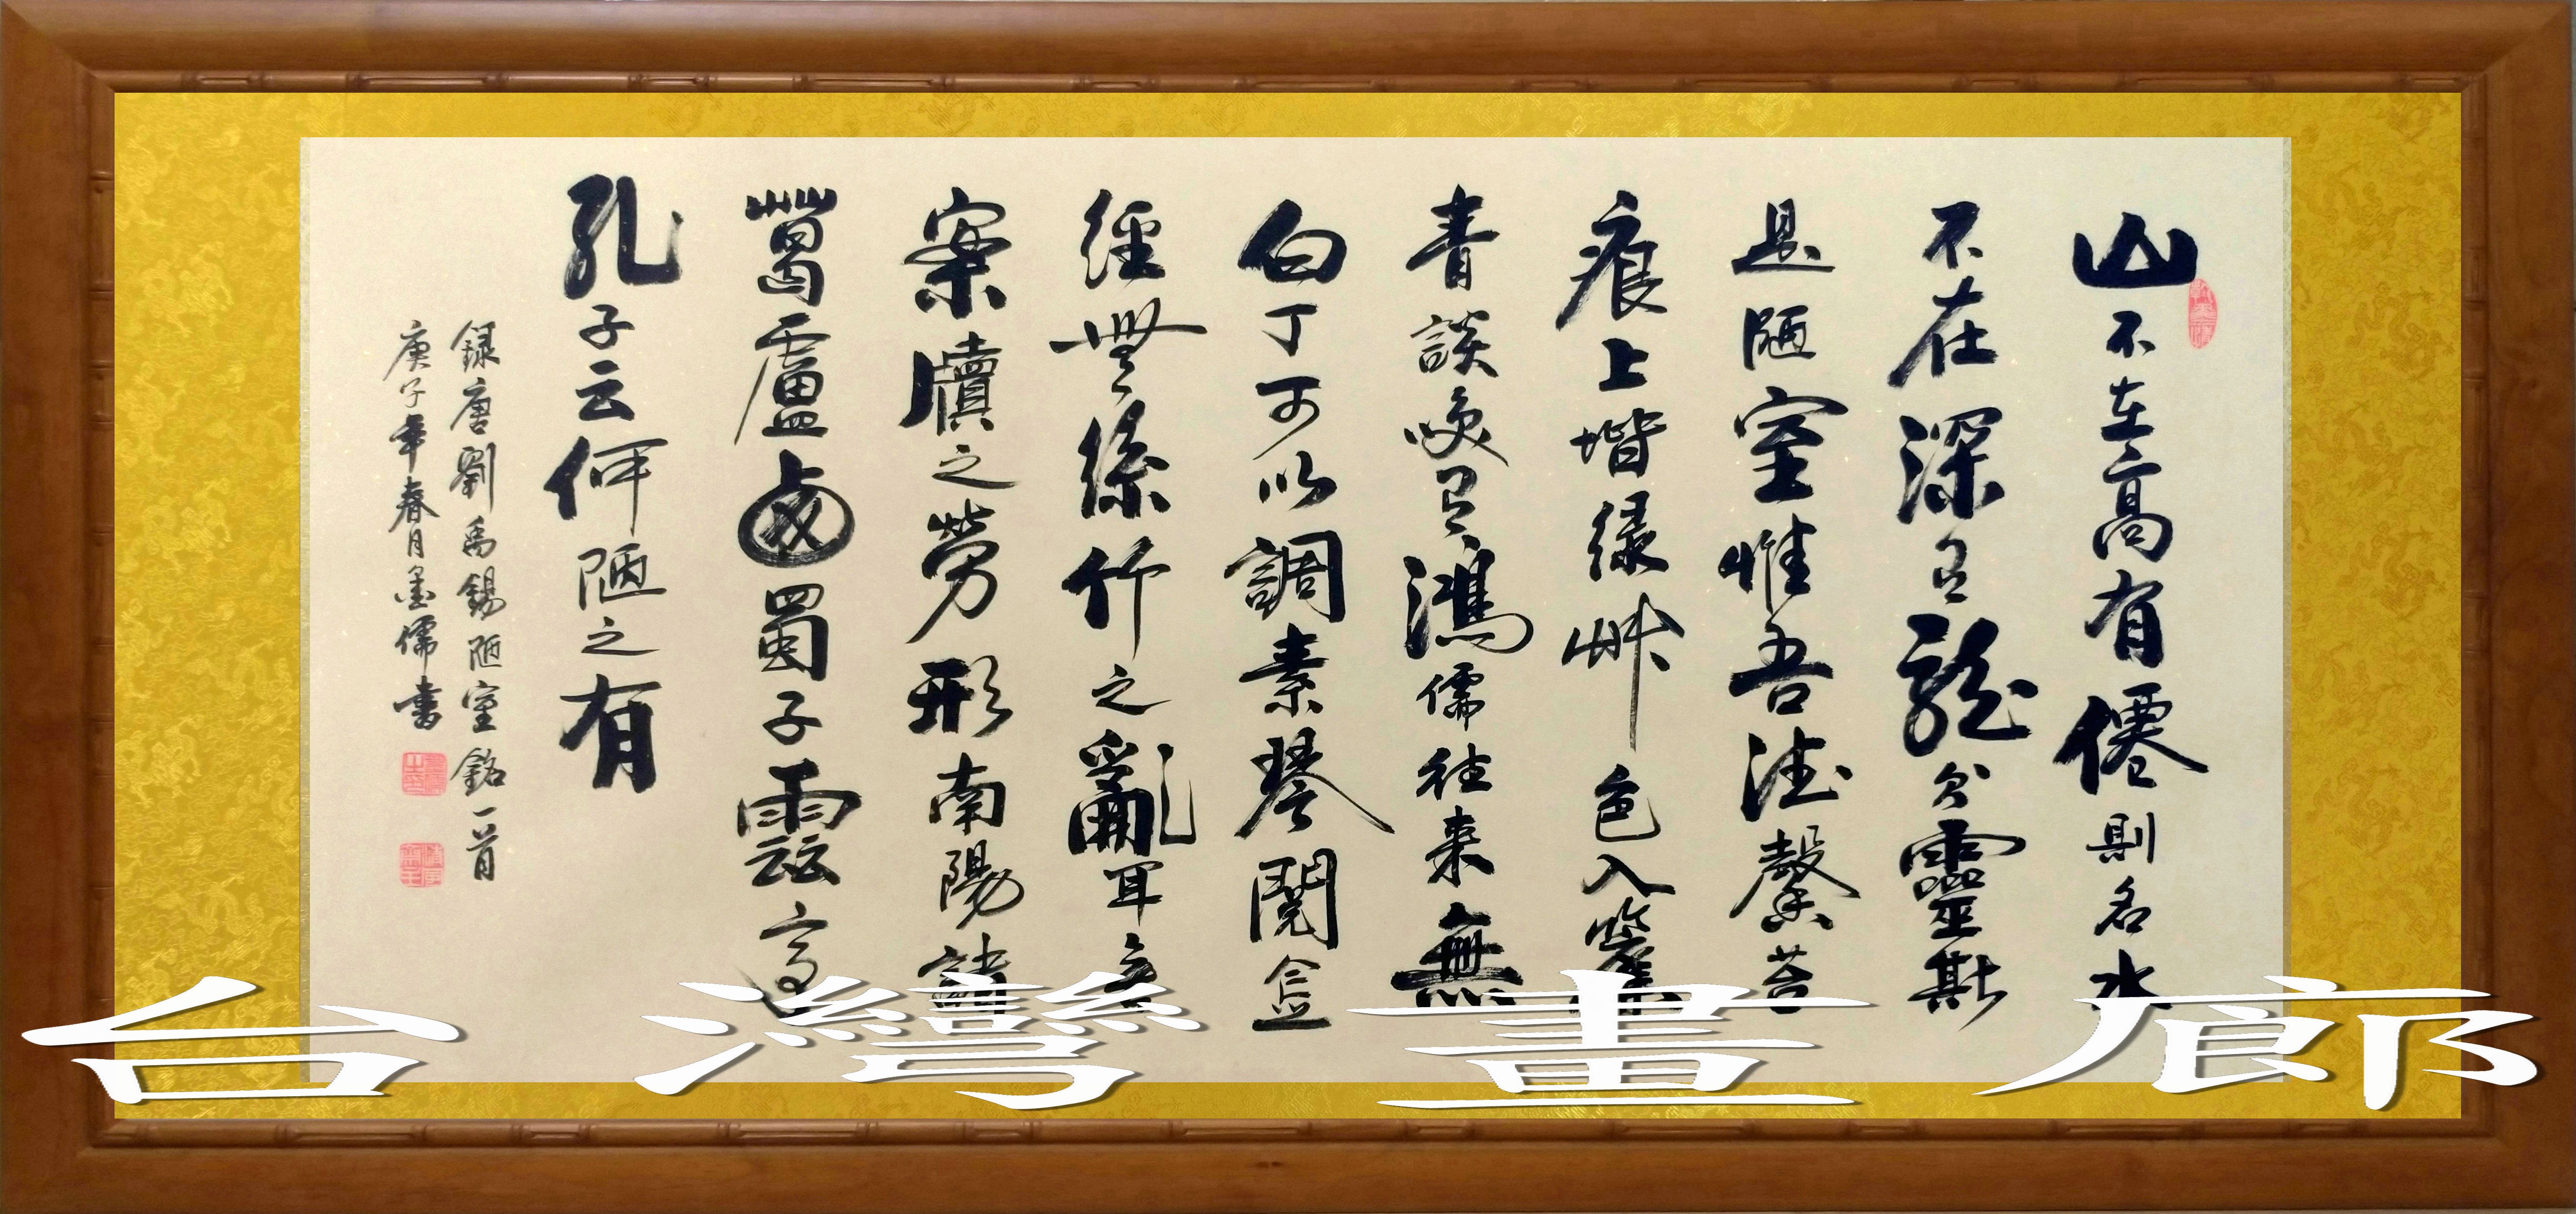 山不在高有僊則名水
不在深有龍則靈斯
是陋室惟吾德馨苔
痕上堦綠艸色入簾
青談咲有鴻儒往來無
白丁可以調素琴閱金
經無絲竹之亂耳無
案牘之勞形南陽諸
葛廬西蜀子雲亭
孔子云何陋之有
録唐劉禹錫陋室銘一首
庚子年春月墨儒書
台灣畫廊